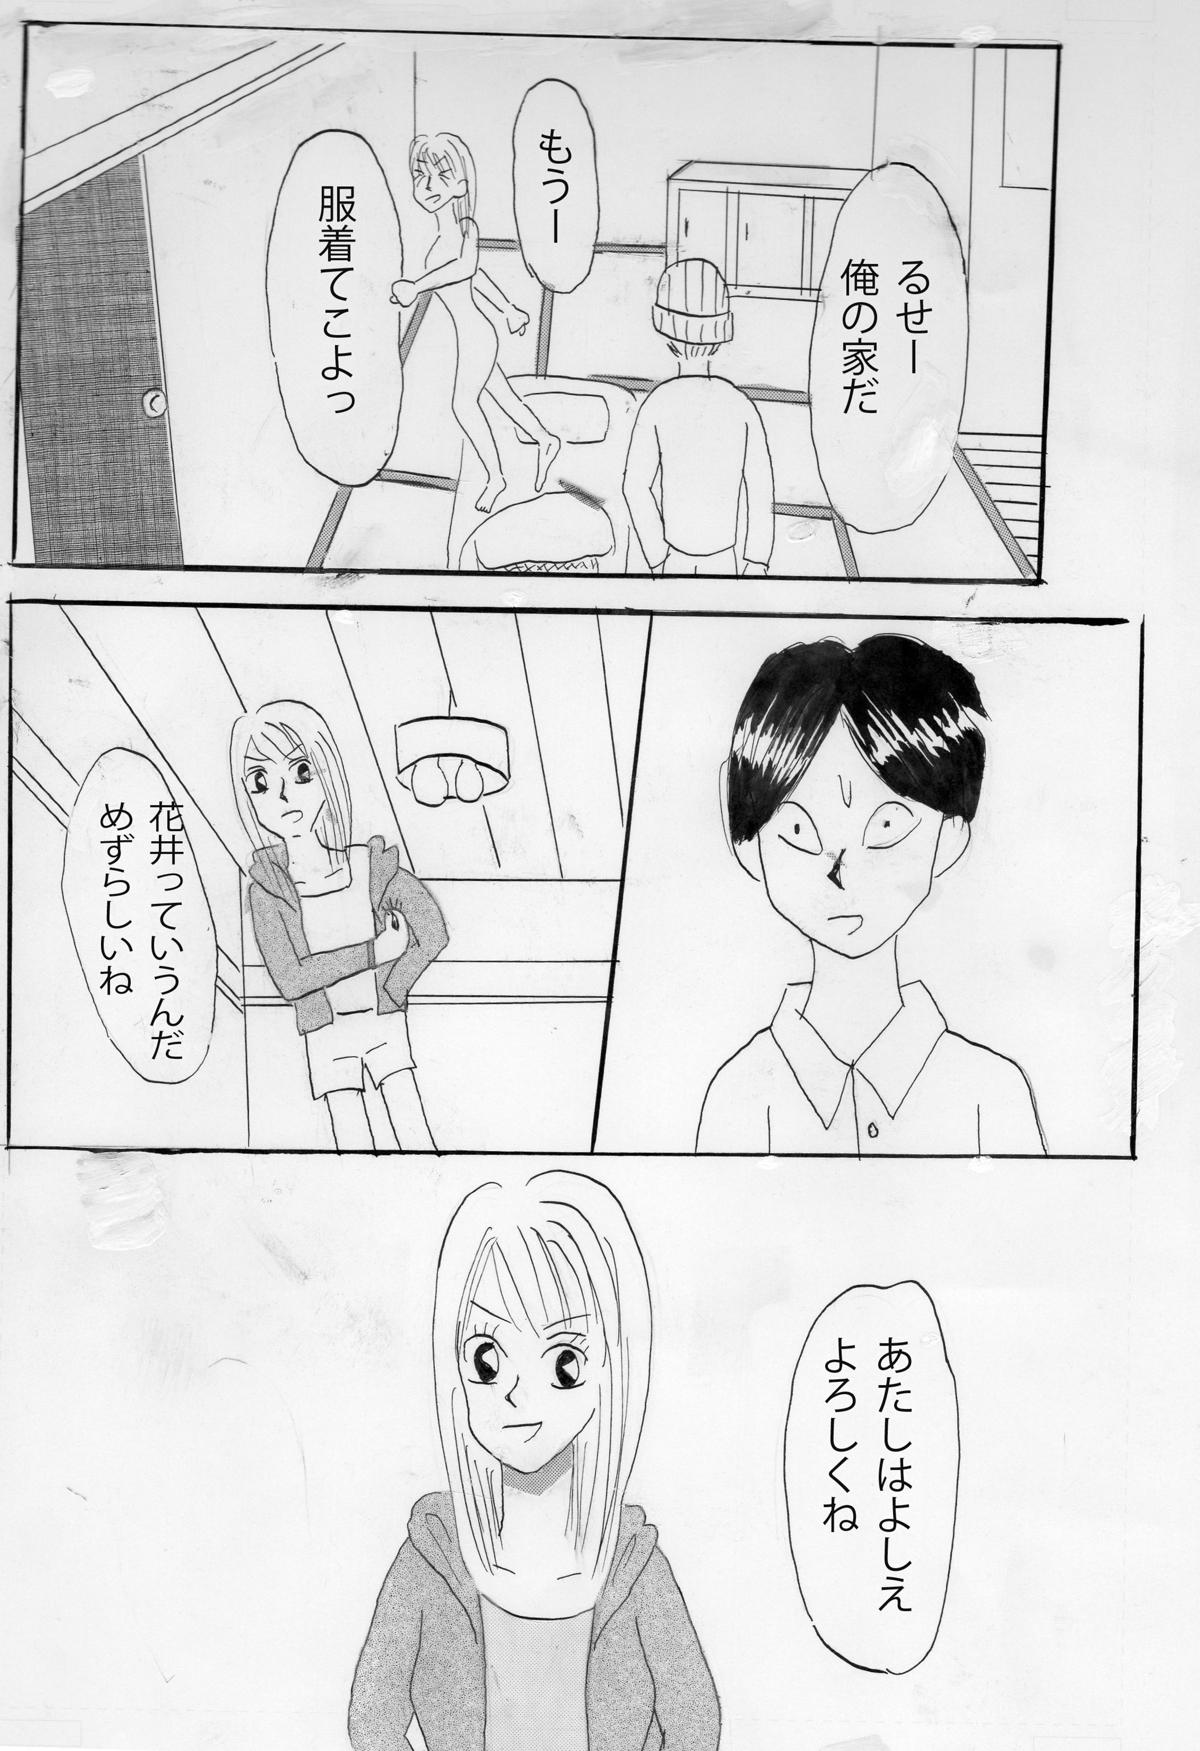 るせー
俺の家だ
もうー
服着てこよっ
花井っていうんだ
めずらしいね
あたしはよしえ
よろしくね